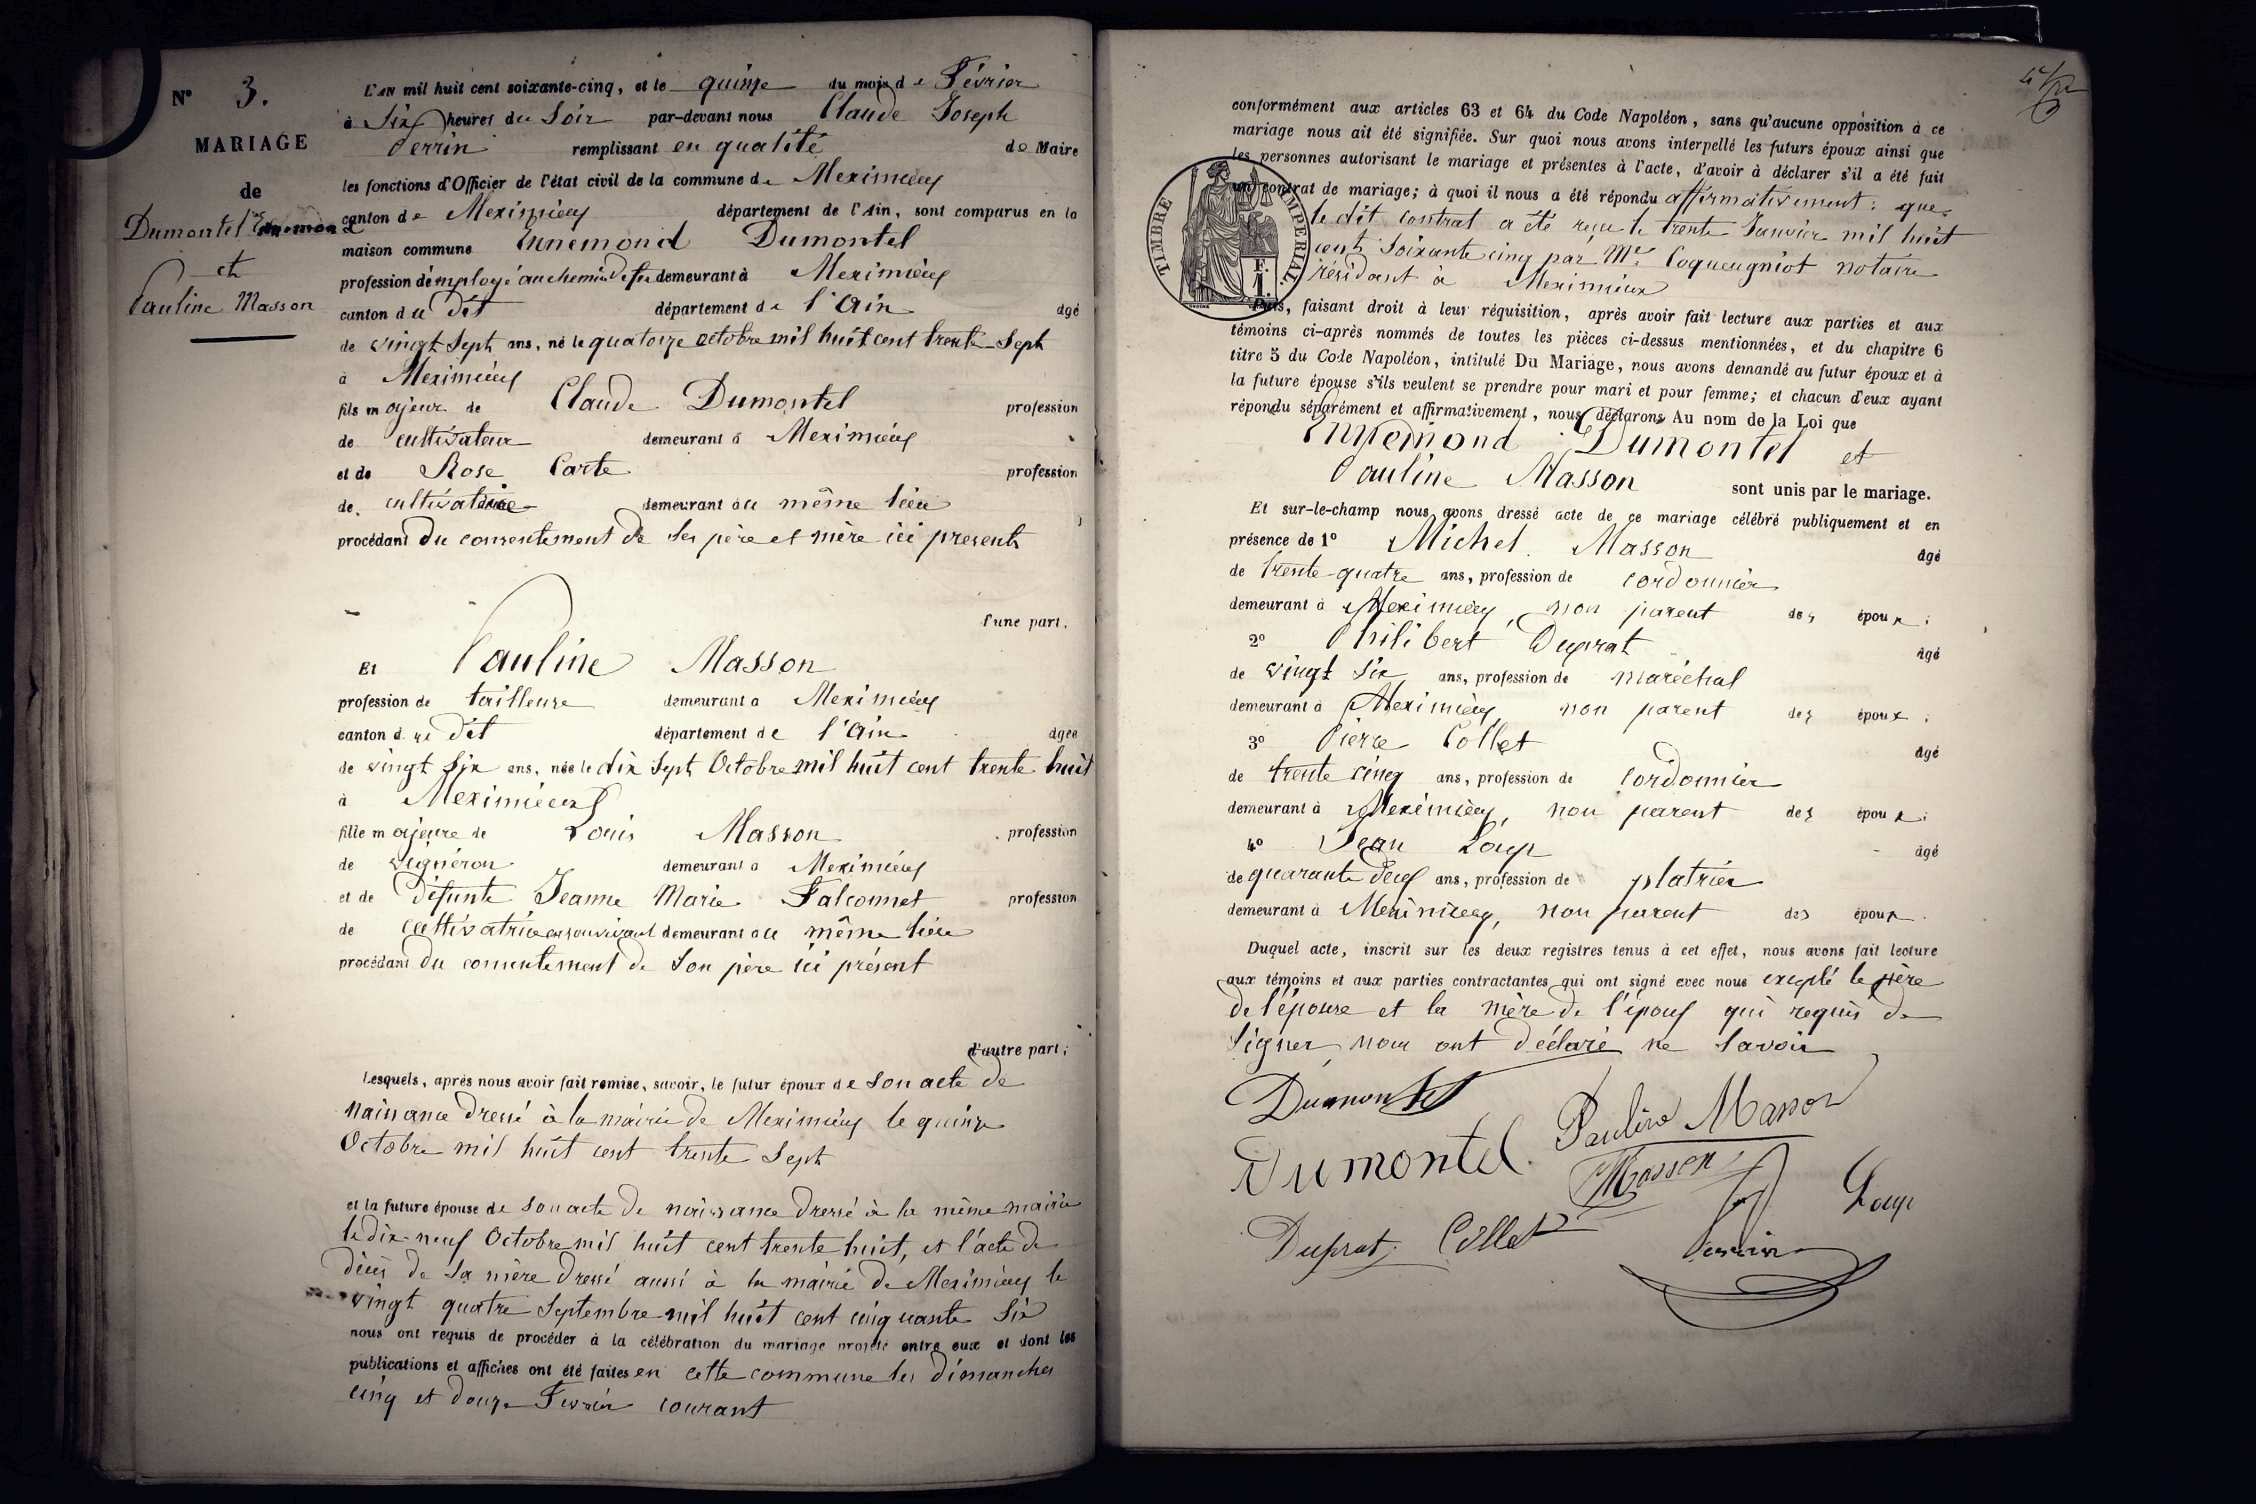 N° 3.
MARIAGE
de
Dumontel
et
Pauline Masson
L'AN mil huit cent soixante-cinq, et le quinze du mois de Février
à Six heures du Soir par-devant nous Claude Joseph
Perrin remplissant en qualité de Maire
les fonctions d'Officier de l'état civil de la commune de Meximieux
canton de Meximieux département de l'Ain, sont comparus en la
maison commune Ennemond Dumontel
profession d'employé au chemin de fer demeurant à Meximieux
canton du dit département de l'Ain âgé
de vingt Sept ans, né le quatorze octobre mil huit cent trente Sept
à Meximieux
fils majeur de Claude Dumontel profession
de cultivateur demeurant à Meximieux
et de Rose Carte profession
de cultivatrice demeurant au même lieu
procédant du consentement de ses père et mère ici présents
d'une part,
Et Pauline Masson
profession de tailleuse demeurant à Meximieux
canton du dit département de l'Ain âgée
de vingt Six ans, née le dix Sept Octobre mil huit cent trente huit
à Meximieux
fille majeure de Louis Masson profession
de vigneron demeurant à Meximieux
et de défunte Jeanne Marie Falconnet profession
de cultivatrice en son vivant demeurant au même lieu
procédant du consentement de Son père ici présent
d'autre part;
Lesquels, après nous avoir fait remise, savoir, le futur époux de Son acte de
naissance dressé à la mairie de Meximieux le quinze
Octobre mil huit cent trente Sept
et la future épouse de Son acte de naissance dressé à la même mairie
le dix neuf Octobre mil huit cent trente huit, et l'acte de
décès de Sa mère dressé aussi à la mairie de Meximieux le
vingt quatre Septembre mil huit cent cinquante Six
nous ont requis de procéder à la célébration du mariage projeté entre eux et dont les
publications et affiches ont été faites en cette commune les dimanches
cinq et douze Février courant
conformément aux articles 63 et 64 du Code Napoléon, sans qu'aucune opposition à ce
mariage nous ait été signifiée. Sur quoi nous avons interpellé les futurs époux ainsi que
les personnes autorisant le mariage et présentes à l'acte, d'avoir à déclarer s'il a été fait
un contrat de mariage; à quoi il nous a été répondu affirmativement: que
le dit contrat a été reçu le trente Janvier mil huit
cent Soixante cinq par Me Coqueugniot notaire
résidant à Meximieux
TIMBRE IMPERIAL.
F.
1.
Puis, faisant droit à leur réquisition, après avoir fait lecture aux parties et aux
témoins ci-après nommés de toutes les pièces ci-dessus mentionnées, et du chapitre 6
titre 5 du Code Napoléon, intitulé Du Mariage, nous avons demandé au futur époux et à
la future épouse s'ils veulent se prendre pour mari et pour femme; et chacun d'eux ayant
répondu séparément et affirmativement, nous déclarons Au nom de la Loi que
Ennemond Dumontel et
Pauline Masson sont unis par le mariage.
Et sur-le-champ nous avons dressé acte de ce mariage célébré publiquement et en
présence de 1° Michel Masson âgé
de trente-quatre ans, profession de cordonnier
demeurant à Meximieux, non parent des époux;
2° Philibert Duprat âgé
de vingt Six ans, profession de maréchal
demeurant à Meximieux, non parent des époux;
3° Pierre Collet âgé
de trente cinq ans, profession de Cordonnier
demeurant à Meximieux, non parent des époux;
4° Jean Loup âgé
de quarante deux ans, profession de platrier
demeurant à Meximieux, non parent des époux.
Duquel acte, inscrit sur les deux registres tenus à cet effet, nous avons fait lecture
aux témoins et aux parties contractantes qui ont signé avec nous excepté le père
de l'épouse et la mère de l'époux qui requis de
Signer, nous ont déclaré ne Savoir
Dumontel
Pauline Masson
Dumontel.
Masson
Loup
Duprat. Collet
Perrin